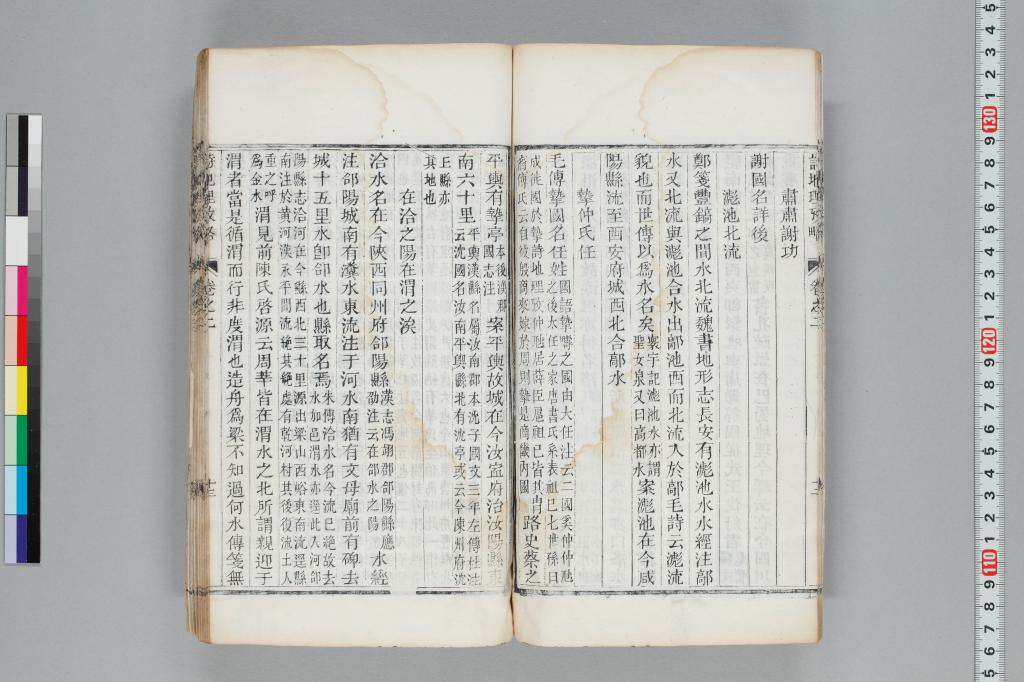 肅肅謝功
謝國名詳後
滮池北流
鄭箋豐鎬之間水北流魏書地形志長安有滮池水水經注鄗
水又北流與滮池合水出鄗池西而北流入於鄗毛詩云滮流
貌也而世傳以爲水名矣寰宇記滮池水亦謂聖女泉又曰高都水案滮池在今咸
陽縣流至西安府城西北合鄗水
摯仲氏任
毛傳摯國名任姓國語摯疇之國由大任注云二國奚仲仲虺
之後大任之家唐書氏系表祖已七世孫曰
成徙國於摯詩地理攷仲虺居薛臣扈祖已皆其冑路史蔡之
平輿有摯亭本後漢郡國志注案平輿故城在今汝寧府治汝陽縣東
南六十里平輿漢縣名屬汝南郡本沈子國文三年左傳杜注云沈國名汝南平輿縣北有沈亭或云今陳州府沈
丘縣亦
其地也
在洽之陽在渭之涘
洽水名在今陝西同州府郃陽縣漢志馮翊郃陽縣應劭注云在郃水之陽水經
注郃陽城南有瀵水東流注于河水南猶有文母廟前有碑去
城十五里水卽郃水也縣取名焉朱傳洽水名今流已絶故去水加邑渭水亦逕此入河郃
陽縣志洽河在今縣西北三十里源出梁山西峪東南流逕縣
南注於黃河漢永平間流絶其絶處有乾河村其後復流土人
重之呼
爲金水渭見前陳氏啓源云周莘皆在渭水之北所謂親迎于
渭者當是循渭而行非度渭也造舟爲梁不知過何水傳箋無
卷之二
十三